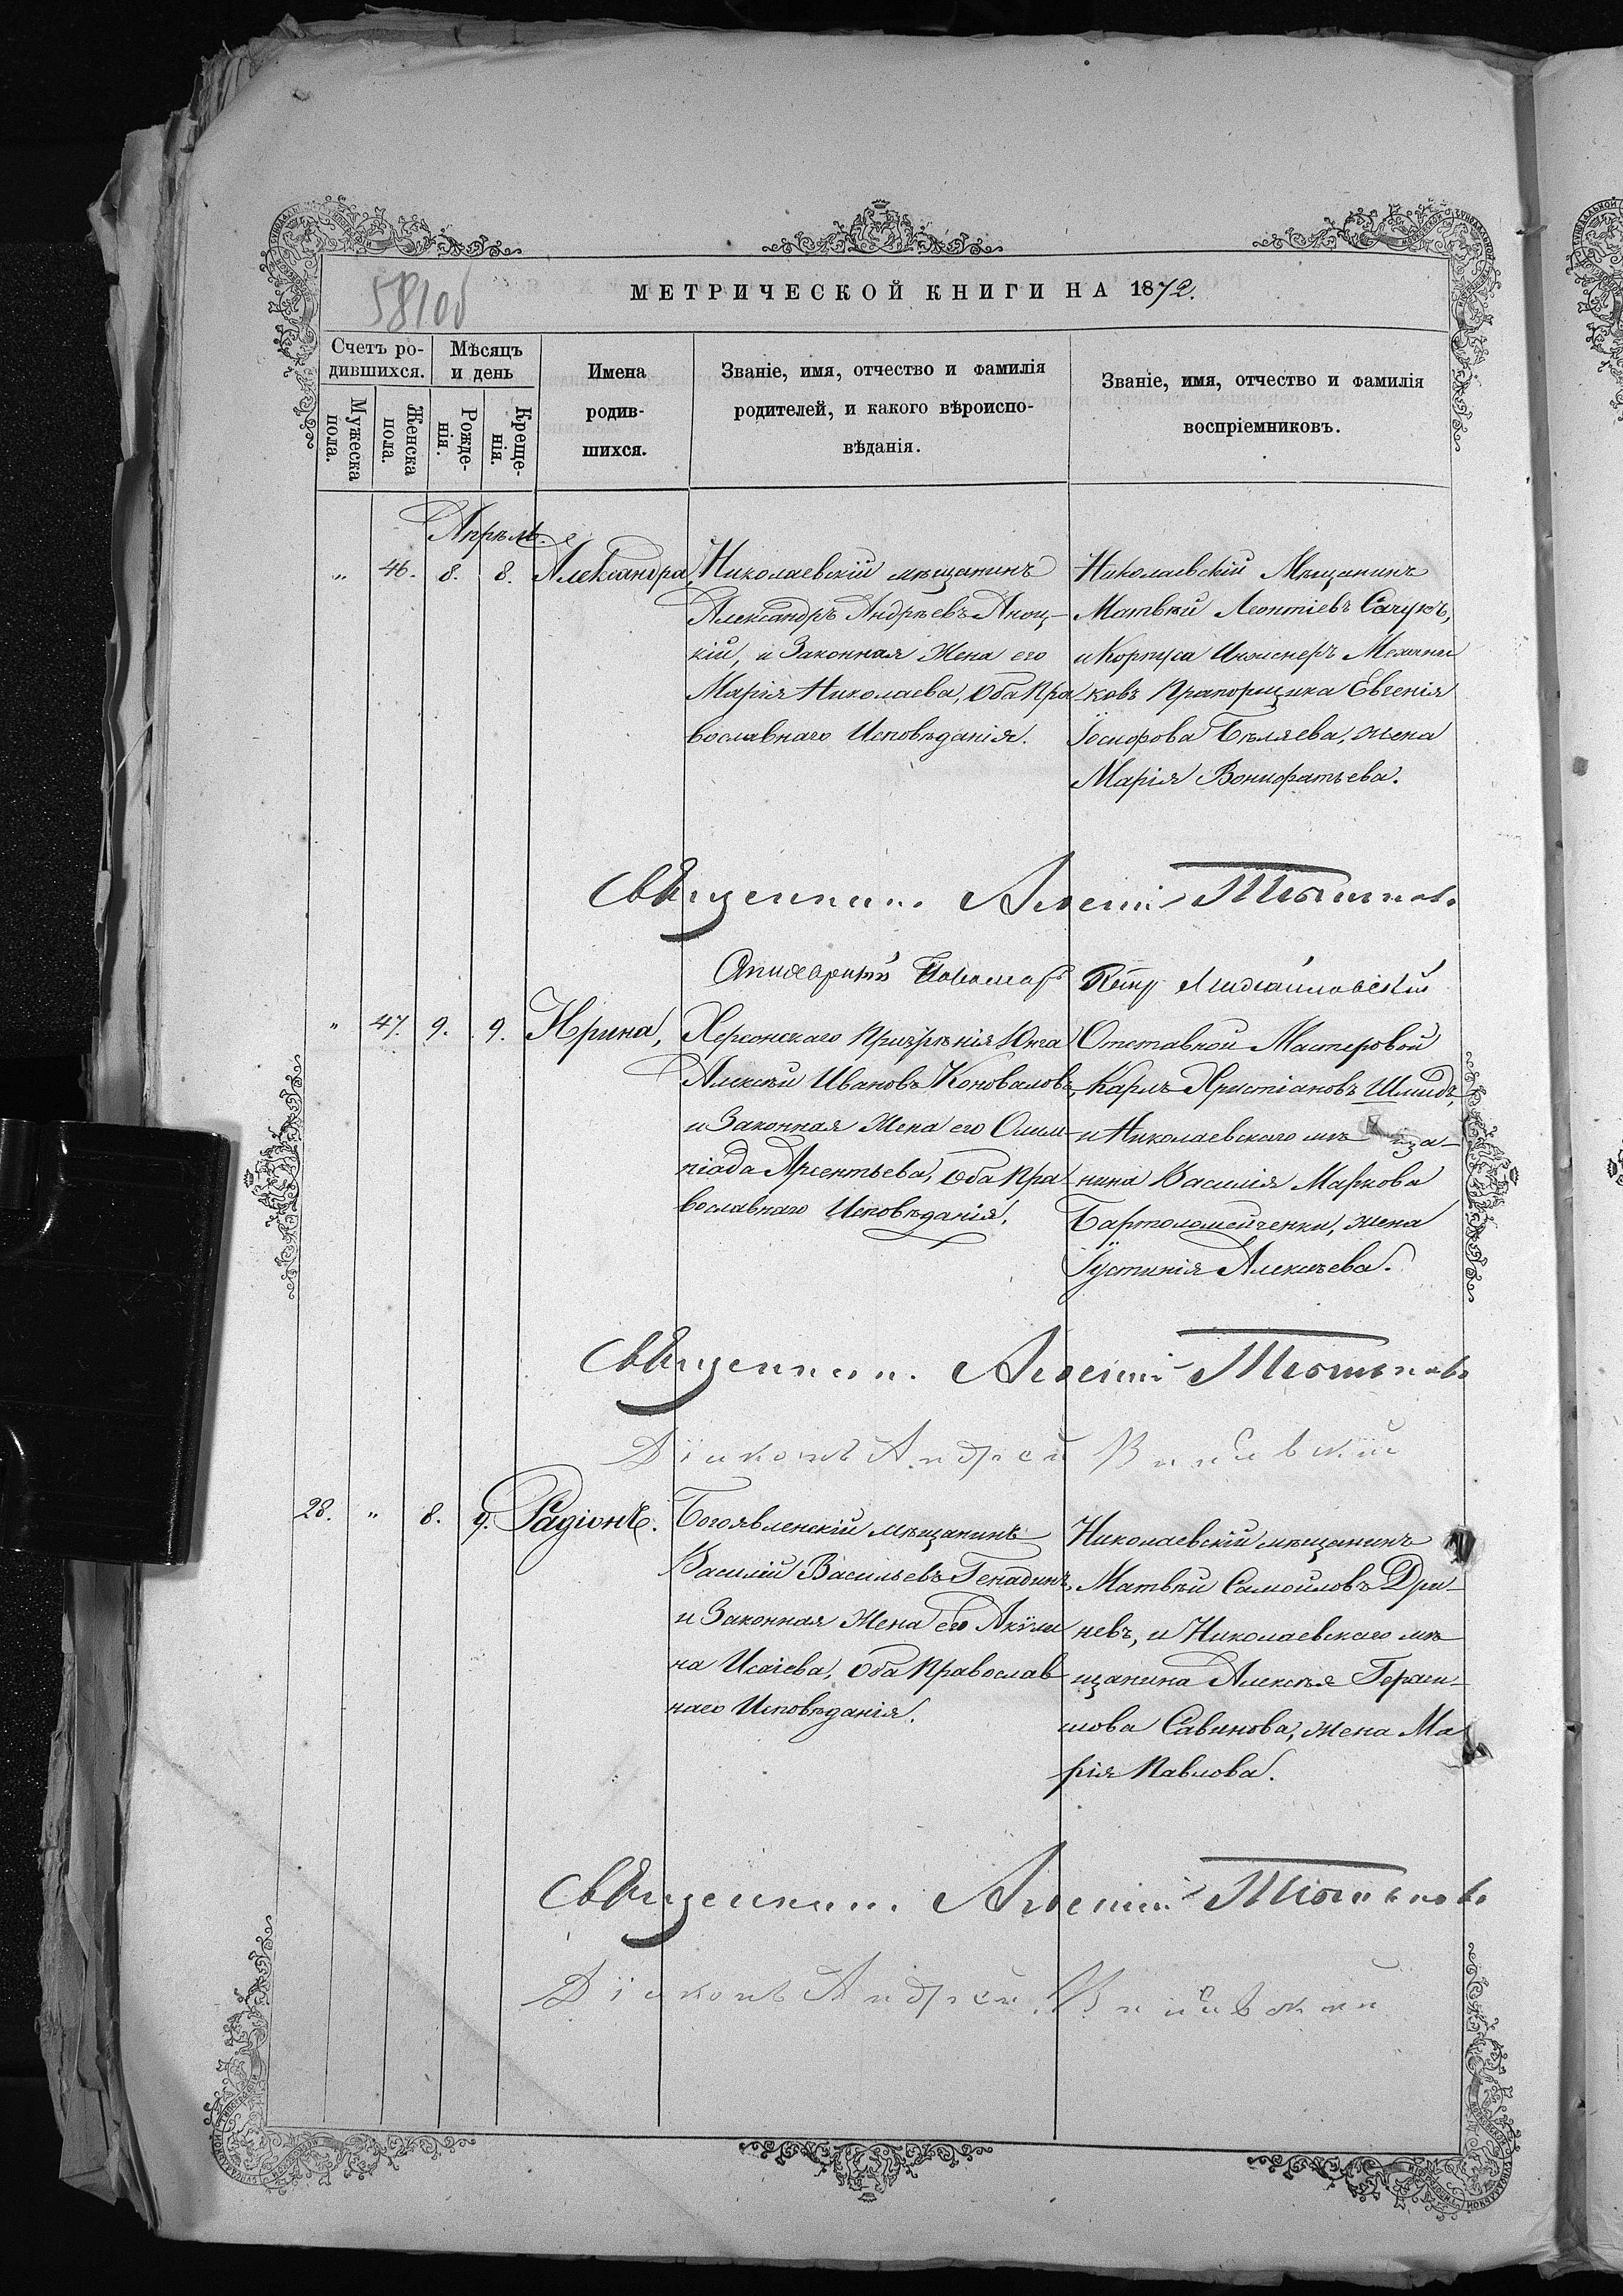 581об
МЕТРИЧЕСКОЙ КНИГИ НА 1872.
Счетъ ро-
дившихся.
Мужеска
пола.
Женска
пола.
Мѣсяцъ
и день
Рожде-
нія.
Креще-
нія.
Имена
родив-
шихся.
Званіе, имя, отчество и фамилія
родителей, и какого вѣроиспо-
вѣданія.
Званіе, имя, отчество и фамилія
воспріемниковъ.
Апрѣль.
" 46. 8. 8. Александра,
Николаевскій мѣщанинъ
Александръ Андрѣевъ
кій, и Законная Жена его
Марія Николаева, Оба Пра
вославнаго Исповѣданія.
Николаевскій Мѣщанинъ
Матвѣй Леонтіевъ Сачукъ,
и Корпуса Инженеръ Механи
ковъ Прапорщика Евгенія
Бѣляева, жена
Марія Вонифатьева.
Священникъ
" 47. 9. 9. Ирина,
Херсонскаго Призрѣнія Юнга
Алексѣй Ивановъ Коноваловъ,
и Законная Жена его Олим-
піада Арсентьева, Оба Пра
вославнаго Исповѣданія.
Петръ Михайловскій
Отставной Мастеровой
Карлъ Христіановъ Шмидъ,
и Николаевскаго мѣ ща-
нина Василія Маркова
Бартоломейченки, жена
Іустинія Алексѣева.
Священникъ
Діаконъ Андрей
28. " 8. 9. Радіонъ.
Богоявленскій мѣщанинъ
Василій Васильевъ Генадинъ,
и Законная Жена его Акили
на Исаіева, Оба Православ
наго Исповѣданія.
Николаевскій мѣщанинъ
Матвѣй Самойловъ Дри-
невъ, и Николаевскаго мѣ
щанина Алексѣя Гераси-
мова Савинова, жена Ма
рія Павлова.
Священникъ
Діаконъ Андрей